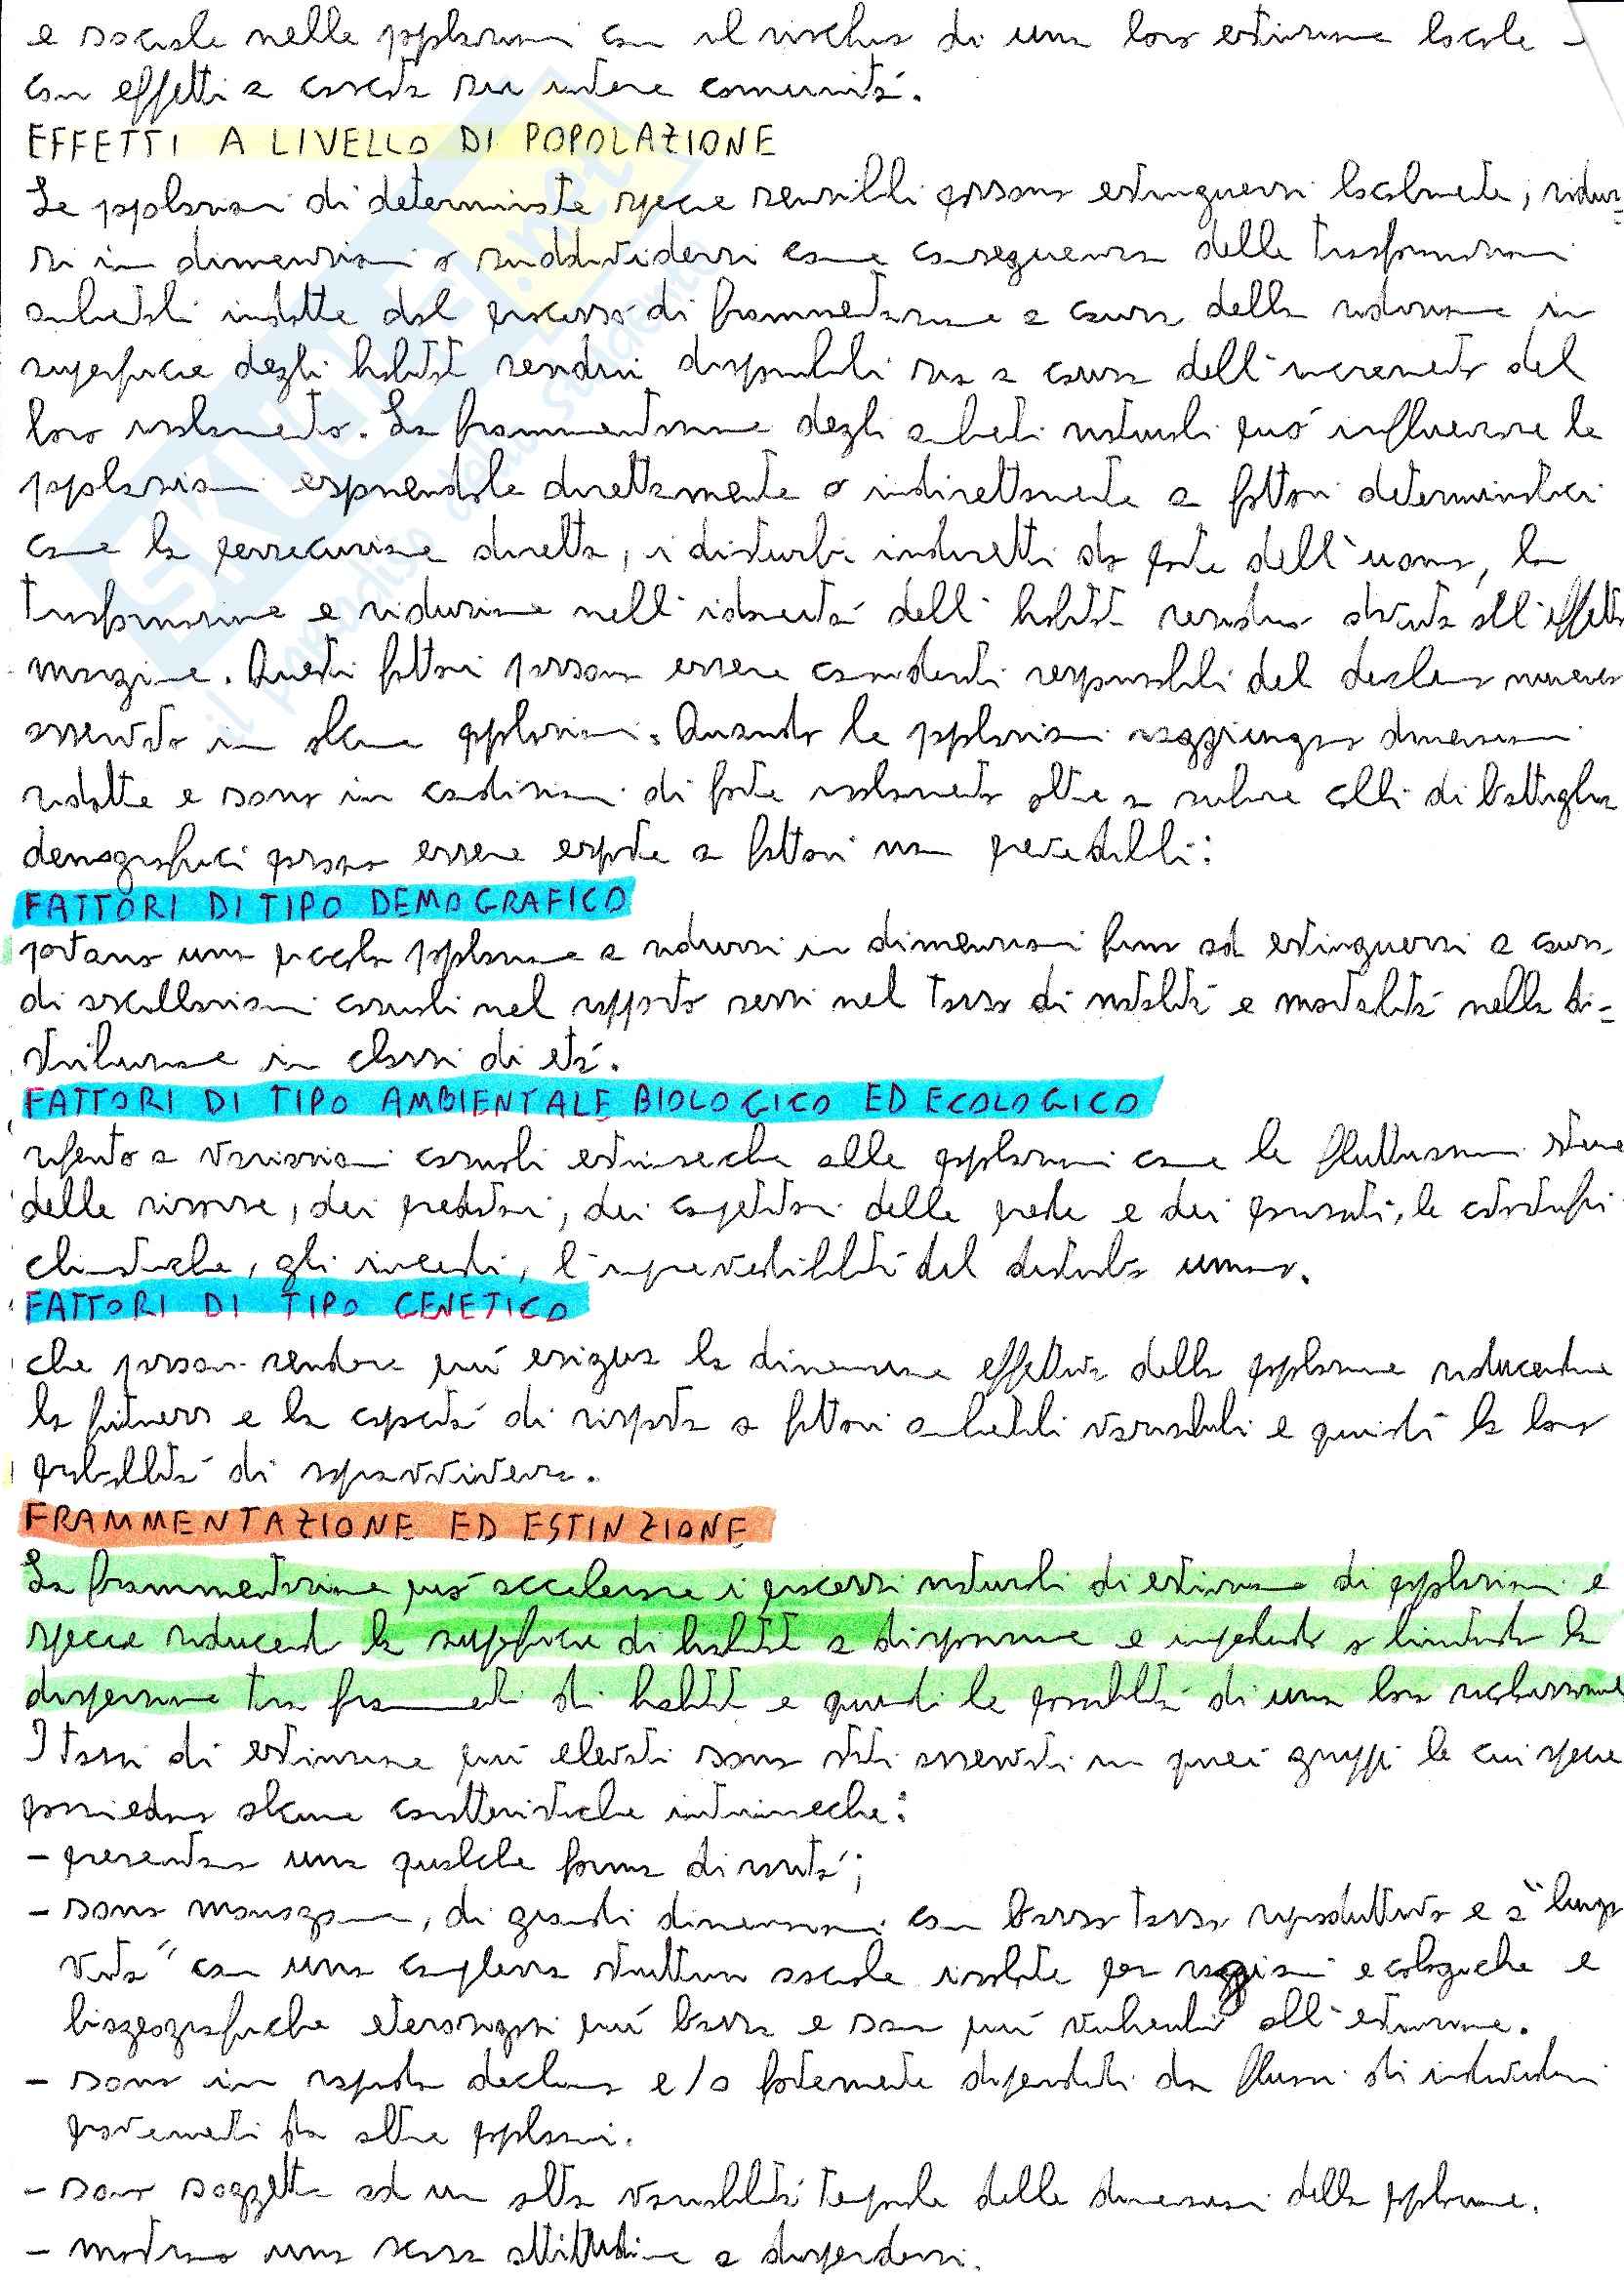 e sociale nelle popolazioni con il rischio di una loro estinzione locale
con effetti a cascata su intere comunità.
EFFETTI A LIVELLO DI POPOLAZIONE
Le popolazioni di determinate specie sensibili possono estinguersi localmente, ridur=
si in dimensioni o suddividersi come conseguenza delle trasformazioni
ambientali indotte dal processo di frammentazione a causa della riduzione in
superficie degli habitat residui disponibili sia a causa dell'incremento del
loro isolamento. La frammentazione degli ambienti naturali può influenzare le
popolazioni esponendole direttamente o indirettamente a fattori deterministici
come la persecuzione diretta, i disturbi indiretti da parte dell'uomo, la
trasformazione e riduzione nell'idoneità dell'habitat residuo dovuta all'effetto
margine. Questi fattori possono essere considerati responsabili del declino numerico
osservato in alcune popolazioni. Quando le popolazioni raggiungono dimensioni
ridotte e sono in condizioni di forte isolamento oltre a subire colli di bottiglia
demografici possono essere esposte a fattori non prevedibili:
FATTORI DI TIPO DEMOGRAFICO
portano una piccola popolazione a ridursi in dimensioni fino ad estinguersi a causa
di oscillazioni casuali nel rapporto sessi nel tasso di natalità e mortalità nella di=
stribuzione in classi di età.
FATTORI DI TIPO AMBIENTALE BIOLOGICO ED ECOLOGICO
riferito a variazioni casuali estrinseche alle popolazioni come le fluttuazioni
delle risorse, dei predatori, dei competitori delle prede e dei parassiti, le catastrofi
climatiche, gli incendi, l'imprevedibilità del disturbo umano.
FATTORI DI TIPO GENETICO
che possono rendere più esigua la dimensione effettiva della popolazione riducendone
la fitness e la capacità di risposta a fattori ambientali variabili e quindi la loro
probabilità di sopravvivenza.
FRAMMENTAZIONE ED ESTINZIONE
La frammentazione può accelerare i processi naturali di estinzione di popolazioni e
specie riducendo la superficie di habitat a disposizione e impedendo o limitando la
dispersione tra frammenti di habitat e quindi le possibilità di una loro ricolonizzazione
I tassi di estinzione più elevati sono stati osservati in quei gruppi le cui specie
possiedono alcune caratteristiche intrinseche:
- presentano una qualche forma di rarità;
- sono monogame, di grandi dimensioni con basso tasso riproduttivo e a "lunga
vita" con una complessa struttura sociale isolate per ragioni ecologiche e
biogeografiche eterozigosi più bassa e sono più vulnerabili all'estinzione.
- sono in rapido declino e/o fortemente dipendenti da flussi di individui
provenienti da altre popolazioni.
- sono soggette ad un alta variabilità temporale delle dimensioni della popolazione.
- mostrano una scarsa attitudine a disperdersi.